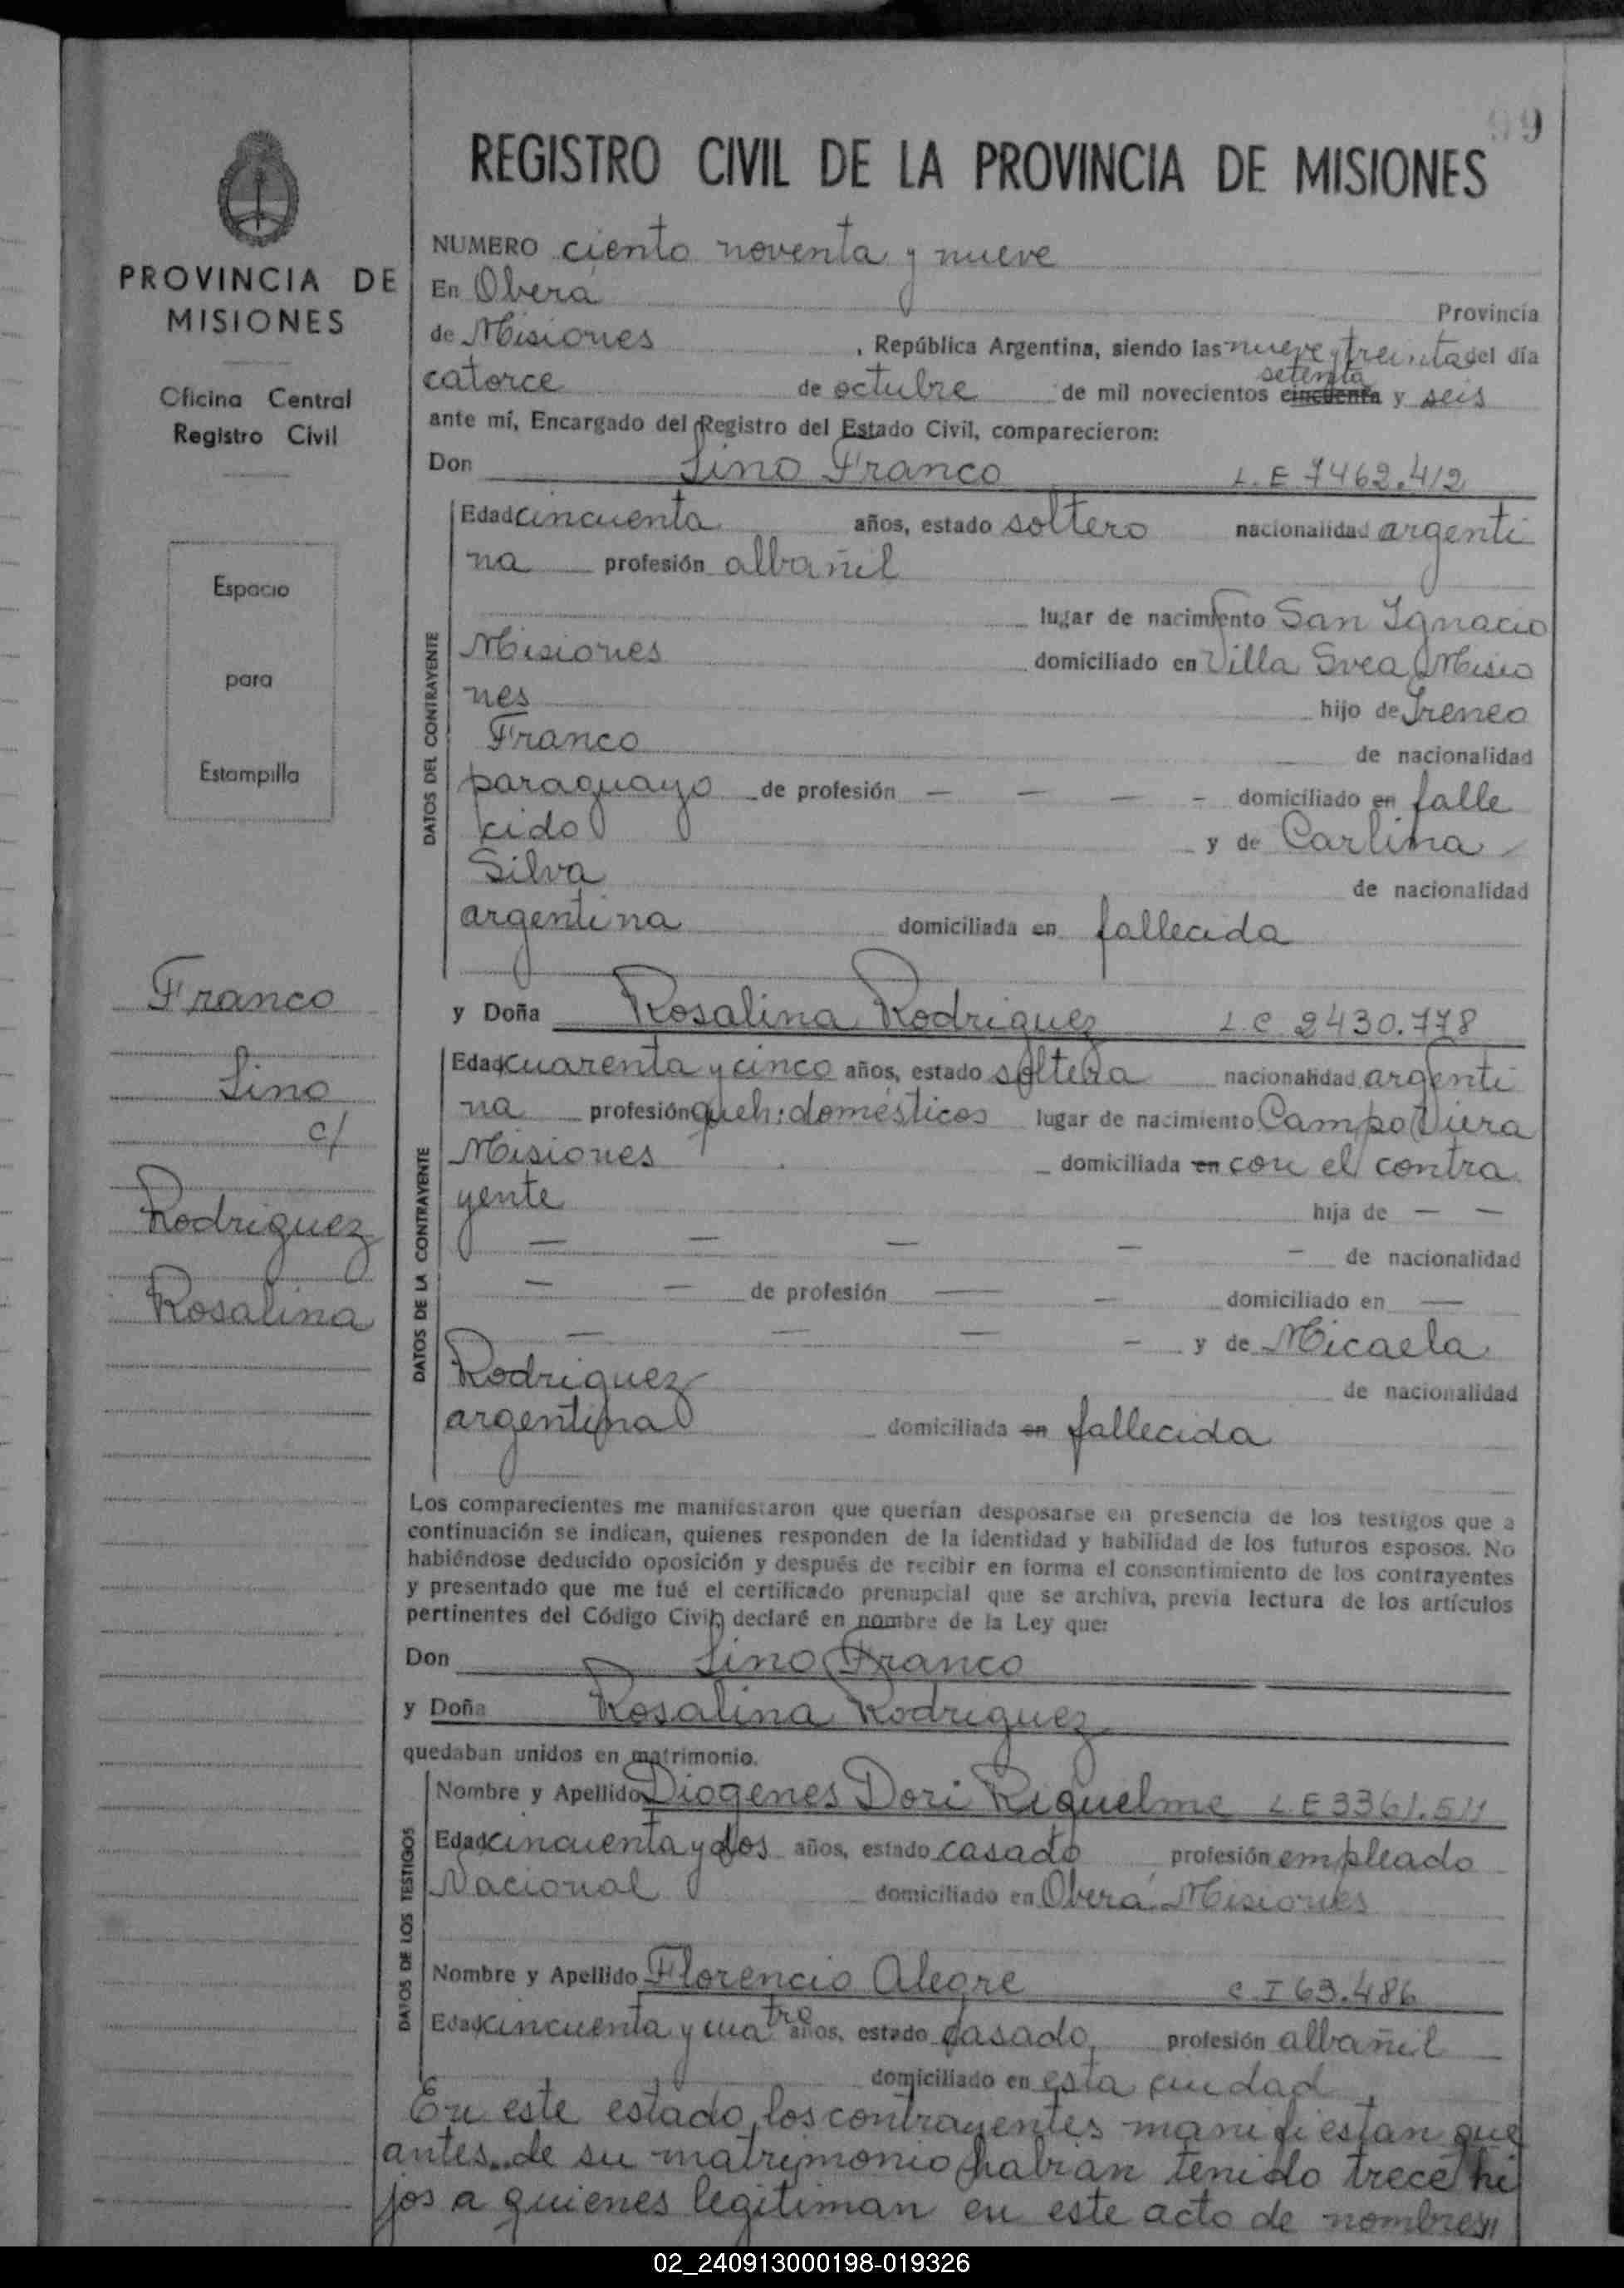 99
REGISTRO CIVIL DE LA PROVINCIA DE MISIONES
PROVINCIA DE
MISIONES
Oficina Central
Registro Civil
Espacio
para
Estampilla
Franco
Lino
c/
Rodriguez
Rosalina
NUMERO ciento noventa y nueve
En Oberá Provincia
de Misiones , República Argentina, siendo las nueve y treinta del día
setenta
catorce de octubre de mil novecientos cincuenta y seis
ante mí, Encargado del Registro del Estado Civil, comparecieron:
Don Lino Franco L.E 7462.412
DATOS DEL CONTRAYENTE
Edad cincuenta años, estado soltero nacionalidad argenti
na profesión albañil
lugar de nacimiento San Ignacio
Misiones domiciliado en Villa Svea Misio
nes hijo de Ireneo
Franco de nacionalidad
paraguayo de profesión — — — — domiciliado en falle
cido y de Carlina
Silva de nacionalidad
argentina domiciliada en fallecida
y Doña Rosalina Rodriguez L.C 2430.778
DATOS DE LA CONTRAYENTE
Edad cuarenta y cinco años, estado soltera nacionalidad argenti
na profesión queh: domésticos lugar de nacimiento Campo Viera
Misiones domiciliada en con el contra
yente hija de — —
— — — — — de nacionalidad
— — de profesión — — domiciliado en —
— — — — y de Micaela
Rodriguez de nacionalidad
argentina domiciliada en fallecida
Los comparecientes me manifestaron que querían desposarse en presencia de los testigos que a
continuación se indican, quienes responden de la identidad y habilidad de los futuros esposos. No
habiéndose deducido oposición y después de recibir en forma el consentimiento de los contrayentes
y presentado que me fué el certificado prenupcial que se archiva, previa lectura de los artículos
pertinentes del Código Civil, declaré en nombre de la Ley que:
Don Lino Franco
y Doña Rosalina Rodriguez
quedaban unidos en matrimonio.
DATOS DE LOS TESTIGOS
Nombre y Apellido Diogenes Dori Riquelme L.E 3361.511
Edad cincuenta y dos años, estado casado profesión empleado
Nacional domiciliado en Oberá Misiones
Nombre y Apellido Florencio Alegre C.I 63.486
Edad cincuenta y cuatro años, estado casado, profesión albañil
domiciliado en esta ciudad,
En este estado los contrayentes manifiestan que
antes de su matrimonio habian tenido trece hi
jos a quienes legitiman en este acto de nombres
02_240913000198-019326